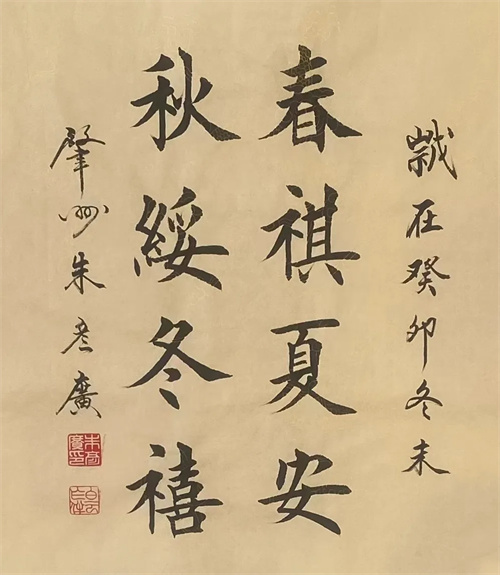 歲在癸卯冬末
春祺夏安
秋綏冬禧
肇州朱廣